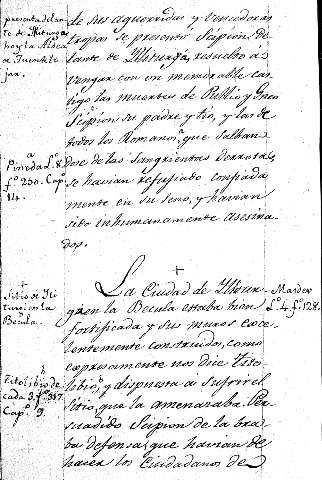 presenta delan-
te de Iliturga
hoy la Aldea
de Fuente te-
jar.
de sus aguerridas y vencedoras
tropas se presentó Scipion de-
lante de Iliturga, resuelto á
vengar con un memorable cas-
tigo las muertes de Publio y Gneo
Scipion su padre y tio, y las de
todos los Romanos, que salban
dose de las sangrientas derrotas,
se havian refugiado confiada
mente en su seno, y havian
sido inhumanamente asesina-
dos.
a
Pineda L.º 8.
f.º 230. Cap.º
14.
+
Sitio de Ili
turgi en la
Becula.
+
La Ciudad de Illitur-
gi en la Becula estaba bien
fortificada y sus muros exce-
lentemente construidos, como
expresamente nos dice Tito
Libio, b y dispuesta a sufrir el
sitio, que la amenazaba. Per-
suadido Scipion de la bra-
ba defensa, que havian de
hacer los Ciudadanos de
L.º 4. f.º 128.
b
Tito Libio de-
cada 3. f.º 387.
Cap.º 9.